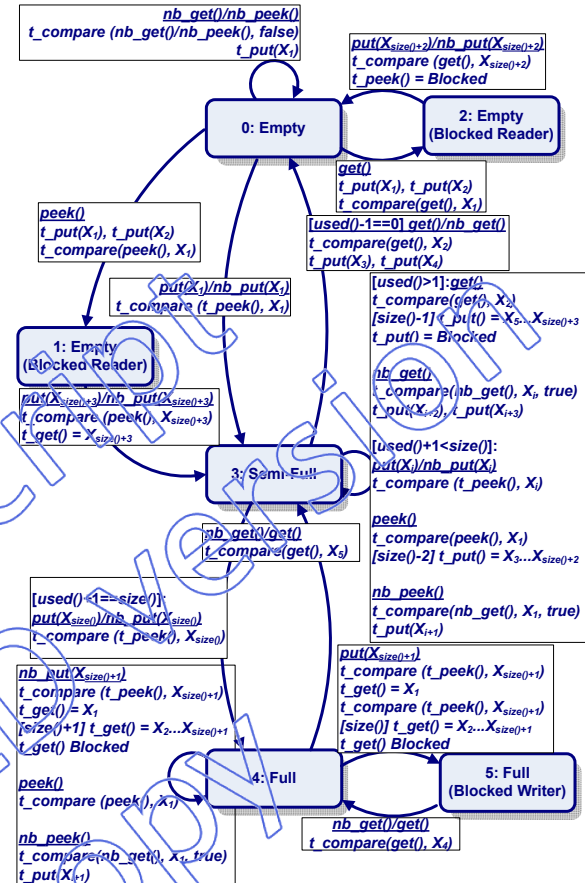 nb_get()/nb_peek()
t_compare (nb_get()/nb_peek(), false)
t_put(X1)
put(Xsize()+2)/nb_put(Xsize()+2)
t_compare (get(), Xsize()+2)
t_peek() = Blocked
0: Empty
2: Empty
(Blocked Reader)
get()
t_put(X1), t_put(X2)
t_compare(get(), X1)
peek()
t_put(X1), t_put(X2)
t_compare(peek(), X1)
[used()-1==0] get()/nb_get()
t_compare(get(), X2)
t_put(X3), t_put(X4)
put(X1)/nb_put(X1)
t_compare (t_peek(), X1)
[used()>1]:get()
t_compare(get(), X2)
[size()-1] t_put() = X5...Xsize()+3
t_put() = Blocked
nb_get()
t_compare(nb_get(), Xi, true)
t_put(Xi+2), t_put(Xi+3)
1: Empty
(Blocked Reader)
put(Xsize()+3)/nb_put(Xsize()+3)
t_compare (peek(), Xsize()+3)
t_get() = Xsize()+3
[used()+1<size()]:
put(Xi)/nb_put(Xi)
t_compare (t_peek(), Xi)
peek()
t_compare(peek(), X1)
[size()-2] t_put() = X3...Xsize()+2
nb_peek()
t_compare(nb_get(), X1, true)
t_put(Xi+1)
3: Semi-Full
nb_get()/get()
t_compare(get(), X5)
[used()+1==size()]:
put(Xsize())/nb_put(Xsize())
t_compare (t_peek(), Xsize())
nb_put(Xsize()+1)
t_compare (t_peek(), Xsize()+1)
t_get() = X1
[size()+1] t_get() = X2...Xsize()+1
t_get() Blocked
peek()
t_compare (peek(), X1)
nb_peek()
t_compare(nb_get(), X1, true)
t_put(Xi+1)
put(Xsize()+1)
t_compare (t_peek(), Xsize()+1)
t_get() = X1
t_compare (t_peek(), Xsize()+1)
[size()] t_get() = X2...Xsize()+1
t_get() Blocked
4: Full
5: Full
(Blocked Writer)
nb_get()/get()
t_compare(get(), X4)